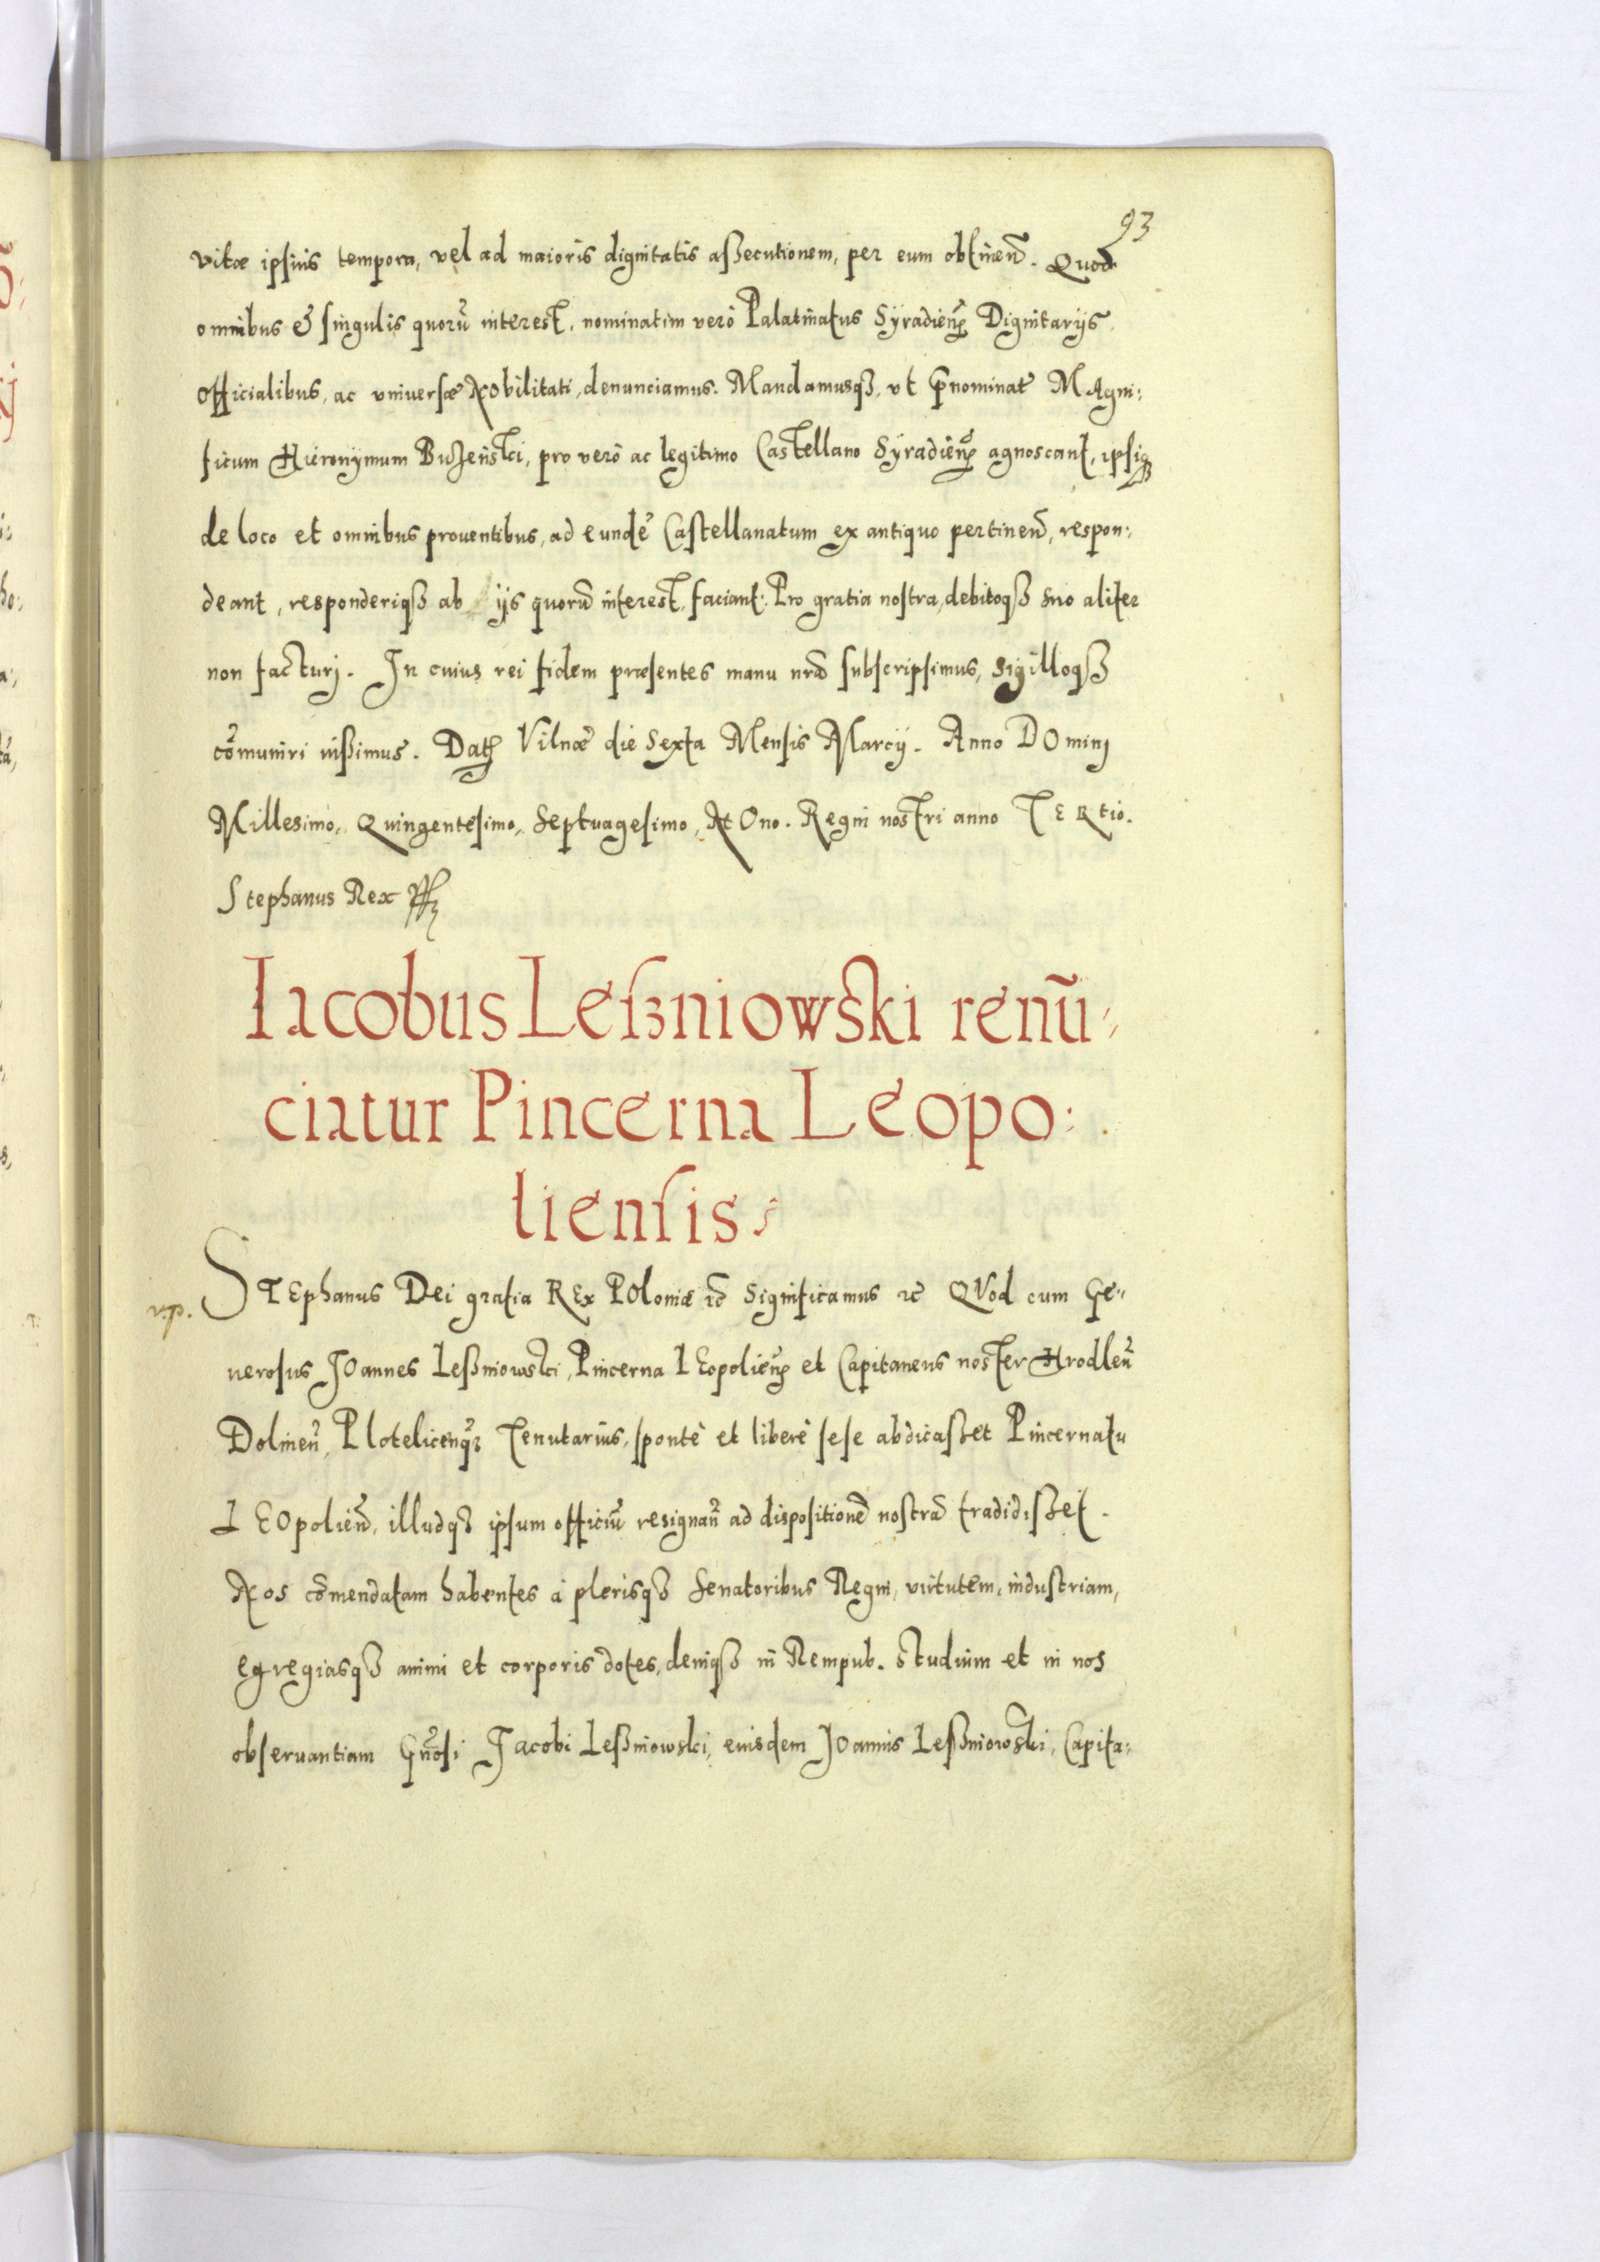 93
vitæ ipsius tempora, vel ad maioris dignitatis aßecutionem, per eum obtineñ. Quod
omnibus & singulis quorũ interest, nominatim verò Palatinatus Syradieñ Dignitarijs
officialibus, ac vniversæ Nobilitati, denunciamus. Mandamusqȝ, vt p̃nominat MAgni:
ficum Hieronymum Buzeński, pro verò ac legitimo Castellano Syradieñ agnoscant, ipsiqȝ
de loco et omnibus proventibus, ad eundẽ Castellanatum ex antiquo pertineñ, respon:
deant, responderiqȝ ab ijs quorũ interest, faciant. Pro gratia nostra, debitoqȝ suo aliter
non facturj. In cuius rei fidem præsentes manu nrã subscripsimus, sigilloqȝ
cõmuniri iußimus. Dat Vilnæ die Sexta Mensis Marcij. Anno DOminj
Millesimo, Quingentesimo, Septuagesimo, NOno. Regni nostri anno TERtio.
Stephanus Rex
Iacobus Leßniowski renũ:
ciatur Pincerna Leopo:
liensis
v.p. STEphanus Dei gratia REx POloniæ &c̃ Significamus &c̃ QVod cum Ge:
nerosus JOannes Leßniowski, Pincerna LEopolieñ et Capitaneus noster Hrodleñ
Dolineñ, Plotelicenqȝ Tenutarius, spontè et liberè sese abdicasset Pincernatu
LEOpolieñ, illudqȝ ipsum officiũ resignañ ad dispositionẽ nostrã tradidisset.
Nos cõmendatam habentes à plerisqȝ Senatoribus Regni, virtutem, industriam,
egregiasqȝ animi et corporis dotes, deniqȝ in Rempub. studium et in nos
observantiam Gñosi Jacobi Leßniowski, eiusdem JOannis Leßniowski, Capita: